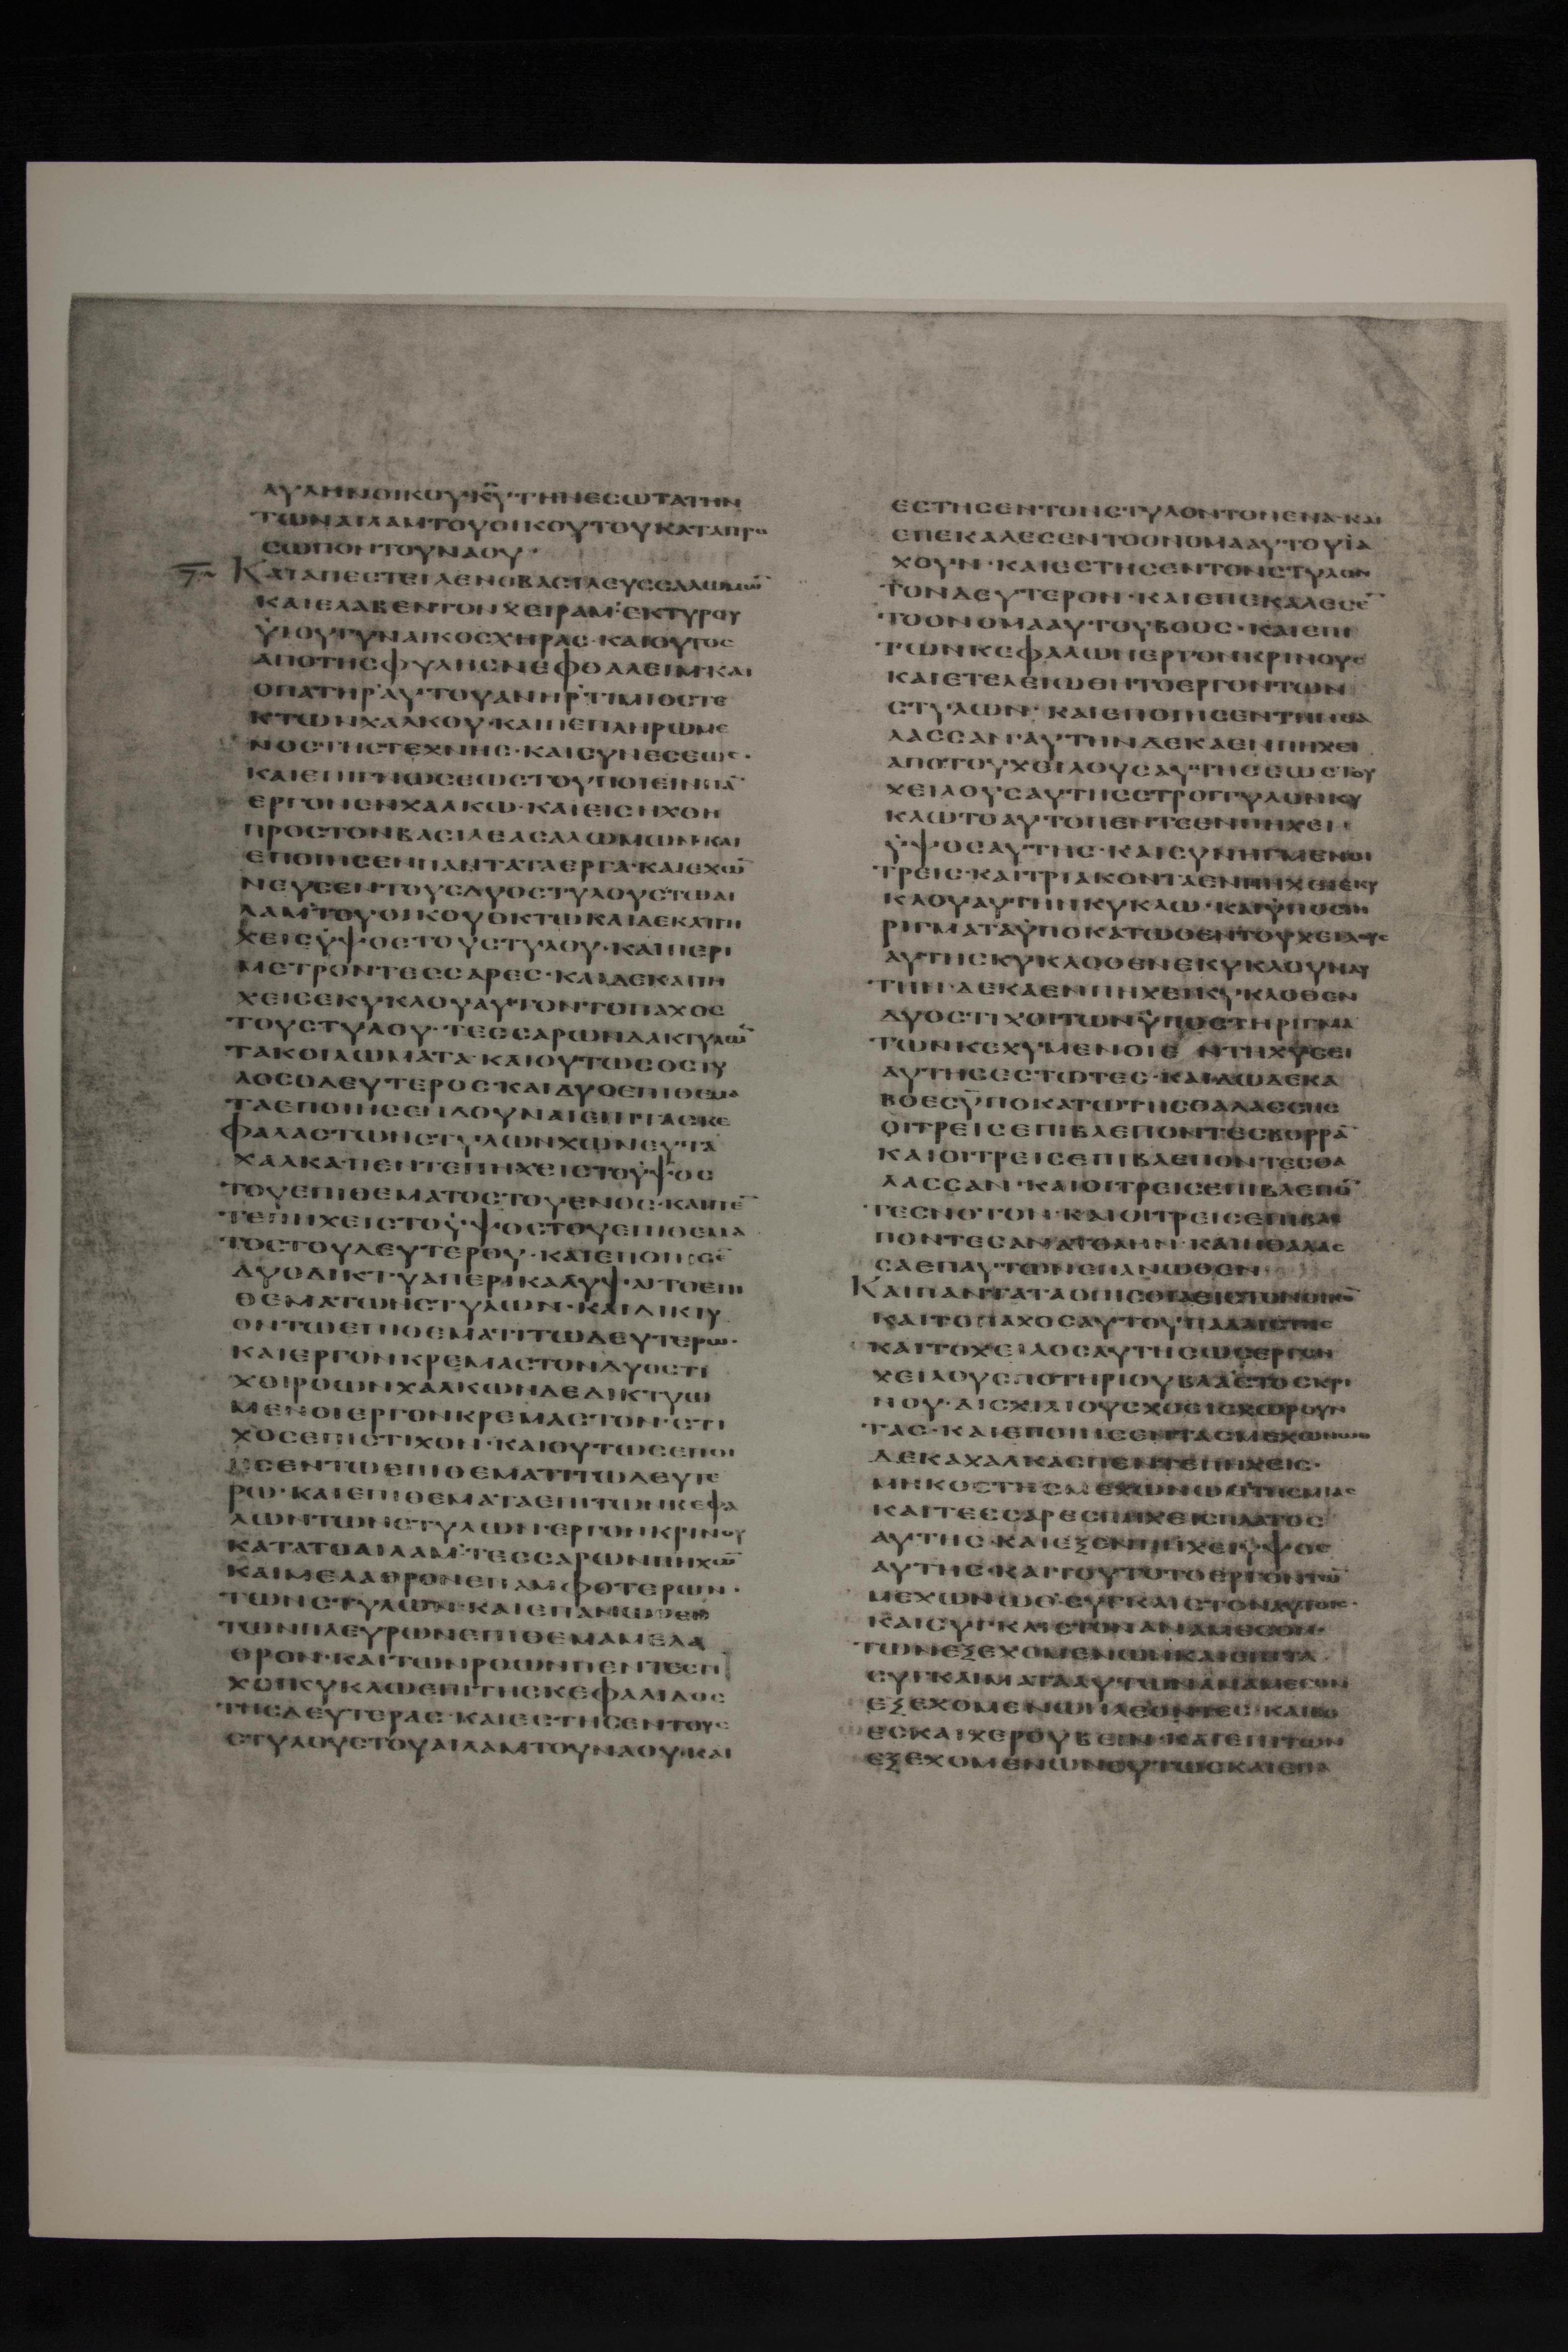 ΑΥΛΗΝΟΙΚΟΥ·ΚΥ·ΤΗΝΕΣΩΤΑΤΗΝ
ΤΩΝΑΙΛΑΜΤΟΥΟΙΚΟΥΤΟΥΚΑΤΑΠΡΟ
ΣΩΠΟΝΤΟΥΝΑΟΥ·
ΚΑΙΑΠΕΣΤΕΙΛΕΝΟΒΑΣΙΛΕΥΣΣΑΛΩΜΩ̄
ΚΑΙΕΛΑΒΕΝΤΟΝΧΕΙΡΑΜ·ΕΚΤΥΡΟΥ
ΫΙΟΥΓΥΝΑΙΚΟΣΧΗΡΑΣ·ΚΑΙΟΥΤΟΣ
ΑΠΟΤΗΣΦΥΛΗΣΝΕΦΘΑΛΕΙΜ·ΚΑΙ
ΟΠΑΤΗΡΑΥΤΟΥΑΝΗΡΤΙΜΙΟΣΤΕ
ΚΤΩΝΧΑΛΚΟΥ·ΚΑΙΠΕΠΛΗΡΩΜΕ
ΝΟΣΤΗΣΤΕΧΝΗΣ·ΚΑΙΣΥΝΕΣΕΩΣ·
ΚΑΙΕΠΙΓΝΩΣΕΩΣΤΟΥΠΟΙΕΙΝΠᾹ
ΕΡΓΟΝΕΝΧΑΛΚΩ·ΚΑΙΕΙΣΗΧΘΗ
ΠΡΟΣΤΟΝΒΑΣΙΛΕΑΣΑΛΩΜΩΝ·ΚΑΙ
ΕΠΟΙΗΣΕΝΠΑΝΤΑΤΑΕΡΓΑ·ΚΑΙΕΧΩ̄
ΝΕΥΣΕΝΤΟΥΣΔΥΟΣΤΥΛΟΥΣΤΩΑΙ
ΛΑΜΤΟΥΟΙΚΟΥΟΚΤΩΚΑΙΔΕΚΑΠΗ
ΧΕΙΣΫΨΟΣΤΟΥΣΤΥΛΟΥ·ΚΑΙΠΕΡΙ
ΜΕΤΡΟΝΤΕΣΣΑΡΕΣ·ΚΑΙΔΕΚΑΠΗ
ΧΕΙΣΕΚΥΚΛΟΥΑΥΤΟΝΤΟΠΑΧΟΣ
ΤΟΥΣΤΥΛΟΥ·ΤΕΣΣΑΡΩΝΔΑΚΤΥΛΩ̄
ΤΑΚΟΙΛΩΜΑΤΑ·ΚΑΙΟΥΤΩΣΟΣΤΥ
ΛΟΣΟΔΕΥΤΕΡΟΣ·ΚΑΙΔΥΟΕΠΙΘΕΜΑ
ΤΑΕΠΟΙΗΣΕΝΔΟΥΝΑΙΕΠΙΤΑΣΚΕ
ΦΑΛΑΣΤΩΝΣΤΥΛΩΝΧΩΝΕΥΤΑ
ΧΑΛΚΑΠΕΝΤΕΠΗΧΕΙΣΤΟΫΨΟΣ
ΤΟΥΕΠΙΘΕΜΑΤΟΣΤΟΥΕΝΟΣ·ΚΑΙΠΕ̄
ΤΕΠΗΧΕΙΣΤΟΫΨΟΣΤΟΥΕΠΙΘΕΜΑ
ΤΟΣΤΟΥΔΕΥΤΕΡΟΥ·ΚΑΙΕΠΟΙΗΣΕ̄
ΔΥΟΔΙΚΤΥΑΠΕΡΙΚΑΛΥΨΑΙΤΟΕΠΙ
ΘΕΜΑΤΩΝΣΤΥΛΩΝ·ΚΑΙΔΙΚΤΥ
ΟΝΤΩΕΠΙΘΕΜΑΤΙΤΩΔΕΥΤΕΡΩ·
ΚΑΙΕΡΓΟΝΚΡΕΜΑΣΤΟΝΔΥΟΣΤΙ
ΧΟΙΡΟΩΝΧΑΛΚΩΝΔΕΔΙΚΤΥΩ
ΜΕΝΟΙΕΡΓΟΝΚΡΕΜΑΣΤΟΝ·ΣΤΙ
ΧΟΣΕΠΙΣΤΙΧΟΝ·ΚΑΙΟΥΤΩΣΕΠΟΙ
ΗΣΕΝΤΩΕΠΙΘΕΜΑΤΙΤΩΔΕΥΤΕ
ΡΩ·ΚΑΙΕΠΙΘΕΜΑΤΑΕΠΙΤΩΝΚΕΦΑ
ΛΩΝΤΩΝΣΤΥΛΩΝ·ΕΡΓΟΝΚΡΙΝΟΥ
ΚΑΤΑΤΟΑΙΛΑΜ·ΤΕΣΣΑΡΩΝΠΗΧΩ̄
ΚΑΙΜΕΛΑΘΡΟΝΕΠΑΜΦΟΤΕΡΩΝ·
ΤΩΝΣΤΥΛΩΝ·ΚΑΙΕΠΑΝΩΘΕΝ
ΤΩΝΠΛΕΥΡΩΝΕΠΙΘΕΜΑΜΕΛΑ
ΘΡΟΝ·ΚΑΙΤΩΝΡΟΩΝΠΕΝΤΕΣΤΙ
ΧΟΙΚΥΚΛΩΕΠΙΤΗΣΚΕΦΑΛΙΔΟΣ
ΤΗΣΔΕΥΤΕΡΑΣ·ΚΑΙΕΣΤΗΣΕΝΤΟΥΣ
ΣΤΥΛΟΥΣΤΟΥΑΙΛΑΜΤΟΥΝΑΟΥ·ΚΑΙ
ΕΣΤΗΣΕΝΤΟΝΣΤΥΛΟΝΤΟΝΕΝΑ·ΚΑΙ
ΕΠΕΚΑΛΕΣΕΝΤΟΟΝΟΜΑΑΥΤΟΥΪΑ
ΧΟΥΝ·ΚΑΙΕΣΤΗΣΕΝΤΟΝΣΤΥΛΟΝ
ΤΟΝΔΕΥΤΕΡΟΝ·ΚΑΙΕΠΕΚΑΛΕΣΕ̄
ΤΟΟΝΟΜΑΑΥΤΟΥΒΟΟΣ·ΚΑΙΕΠΙ
ΤΩΝΚΕΦΑΛΩΝΕΡΓΟΝΚΡΙΝΟΥΣ
ΚΑΙΕΤΕΛΕΙΩΘΗΤΟΕΡΓΟΝΤΩΝ
ΣΤΥΛΩΝ·ΚΑΙΕΠΟΙΗΣΕΝΤΗΝΘΑ
ΛΑΣΣΑΝ·ΑΥΤΗΝΔΕΚΑΕΝΠΗΧΕΙ
ΑΠΟΤΟΥΧΕΙΛΟΥΣΑΥΤΗΣΕΩΣΤΟΥ
ΧΕΙΛΟΥΣΑΥΤΗΣΣΤΡΟΓΓΥΛΟΝΚΥ
ΚΛΩΤΟΑΥΤΟΠΕΝΤΕΕΝΠΗΧΕΙ·
ΫΨΟΣΑΥΤΗΣ·ΚΑΙΣΥΝΗΓΜΕΝΟΙ
ΤΡΕΙΣ·ΚΑΙΤΡΙΑΚΟΝΤΑΕΝΠΗΧΕΙΕΚΥ
ΚΛΟΥΑΥΤΗΝΚΥΚΛΩ·ΚΑΙΫΠΟΣΤΗ
ΡΙΓΜΑΤΑΫΠΟΚΑΤΩΘΕΝΤΟΥΧΕΙΛΟΥΣ
ΑΥΤΗΣΚΥΚΛΟΘΕΝΕΚΥΚΛΟΥΝΑΥ
ΤΗΝ·ΔΕΚΑΕΝΠΗΧΕΙΚΥΚΛΟΘΕΝ
ΔΥΟΣΤΙΧΟΙΤΩΝΫΠΟΣΤΗΡΙΓΜΑ
ΤΩΝΚΕΧΥΜΕΝΟΙΕΝΤΗΧΥΣΕΙ
ΑΥΤΗΣΕΣΤΩΤΕΣ·ΚΑΙΔΩΔΕΚΑ
ΒΟΕΣΫΠΟΚΑΤΩΤΗΣΘΑΛΑΣΣΗΣ
ΟΙΤΡΕΙΣΕΠΙΒΛΕΠΟΝΤΕΣΒΟΡΡᾹ
ΚΑΙΟΙΤΡΕΙΣΕΠΙΒΛΕΠΟΝΤΕΣΘΑ
ΛΑΣΣΑΝ·ΚΑΙΟΙΤΡΕΙΣΕΠΙΒΛΕΠΟ̄
ΤΕΣΝΟΤΟΝ·ΚΑΙΟΙΤΡΕΙΣΕΠΙΒΛΕ
ΠΟΝΤΕΣΑΝΑΤΟΛΗΝ·ΚΑΙΗΘΑΛΑΣ
ΣΑΕΠΑΥΤΩΝΕΠΑΝΩΘΕΝ
ΚΑΙΠΑΝΤΑΤΑΟΠΙΣΘΙΑΕΙΣΤΟΝΟΙΚΟ̄
ΚΑΙΤΟΠΑΧΟΣΑΥΤΟΥΠΑΛΑΙΣΤΗΣ
ΚΑΙΤΟΧΕΙΛΟΣΑΥΤΗΣΩΣΕΡΓΟΝ
ΧΕΙΛΟΥΣΠΟΤΗΡΙΟΥΒΛΑΣΤΟΣΚΡΙ
ΝΟΥ·ΔΙΣΧΙΛΙΟΥΣΧΟΕΙΣΧΩΡΟΥΝ
ΤΑΣ·ΚΑΙΕΠΟΙΗΣΕΝΤΑΣΜΕΧΩΝΩΘ
ΔΕΚΑΧΑΛΚΑΣΠΕΝΤΕΠΗΧΕΙΣ·
ΜΗΚΟΣΤΗΣΜΕΧΩΝΩΘΤΗΣΜΙΑΣ
ΚΑΙΤΕΣΣΑΡΕΣΠΗΧΕΙΣΠΛΑΤΟΣ
ΑΥΤΗΣ·ΚΑΙΕΞΕΝΠΗΧΕΙΫΨΟΣ
ΑΥΤΗΣ·ΚΑΙΤΟΥΤΟΤΟΕΡΓΟΝΤΩ̄
ΜΕΧΩΝΩΘ·ΣΥΓΚΛΙΣΤΟΝΑΥΤΟΙΣ·
ΚΑΙΣΥΓΚΛΙΣΤΟΝΑΝΑΜΕΣΟΝ·
ΤΩΝΕΞΕΧΟΜΕΝΩΝΚΑΙΕΠΙΤΑ
ΣΥΓΚΛΙΜΑΤΑΑΥΤΩΝΑΝΑΜΕΣΟΝ
ΕΞΕΧΟΜΕΝΩΝΛΕΟΝΤΕΣ·ΚΑΙΒΟ
ΕΣΚΑΙΧΕΡΟΥΒΕΙΝ·ΚΑΙΕΠΙΤΩΝ
ΕΞΕΧΟΜΕΝΩΝΟΥΤΩΣΚΑΙΕΠΑ